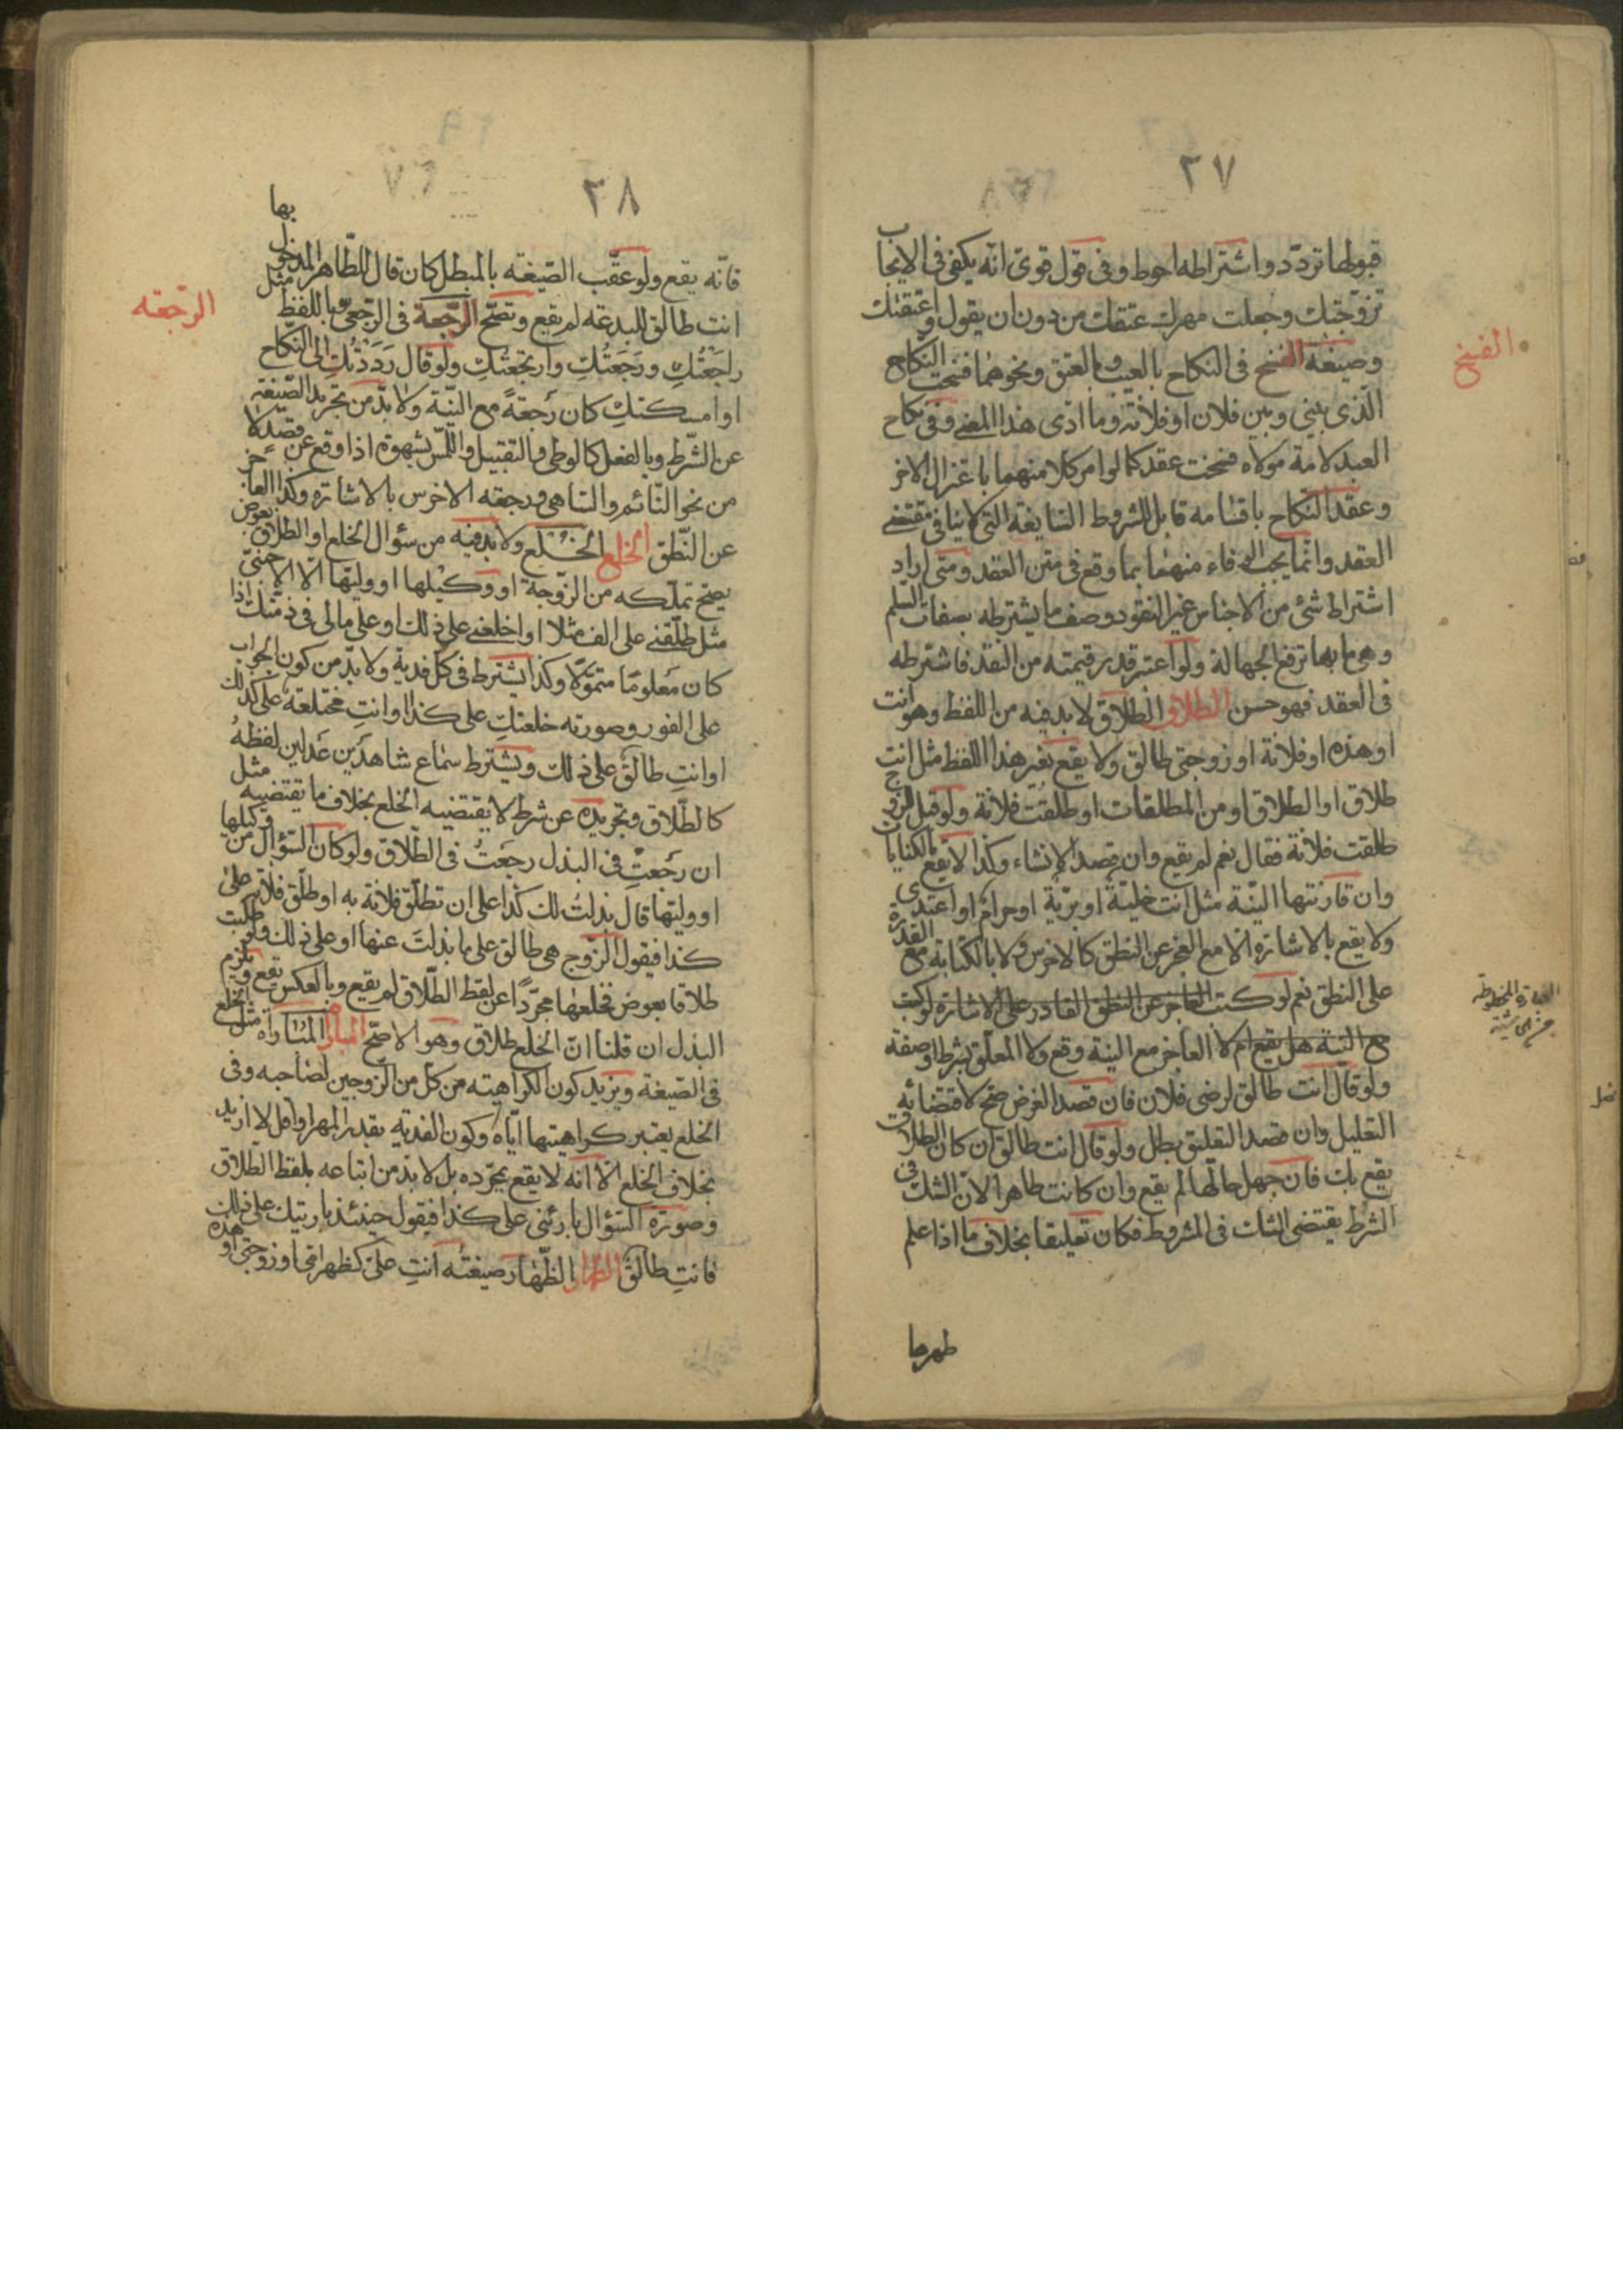 ٢٧
قبولها تردّد واشتراطه احوط وفى قول قوى انّه يكفى فى الايجاب
تزوّجتك وجعلت مهرك عتقك من دون ان يقول واعتقتك
وصيغة الفسخ فى النكاح بالعيب وبالعتق ونحوهما فسخت النكاح
الّذى بينى وبين فلان او فلانة وما ادّى هذا المعنى وفى نكاح
العبد لامة مولاه فسخت عقدكما او امر كلا منهما باعتزال الاخر
وعقد النّكاح باقسامه قابل للشروط السّايغة التى لا ينافى مقتضى
العقد وانّما يجب الوفاء منهما بما وقع فى متن العقد ومتى اراد
اشتراط شئ من الاجناس غير النقود وصف ما يشترطه بصفات السلم
وهى ما بها ترفع الجهالة ولو اعتبر قدر قيمته من النقد فاشترطه
فى العقد فهو حسن الطلاق الطلاق لا بد فيه من اللفظ وهو انت
او هذه او فلانة او زوجتى طالق ولا يقع بغير هذا اللفظ مثل انت
طلاق او الطلاق او من المطلقات او طلقت فلانة ولو قيل للزوج
طلقت فلانة فقال نعم لم يقع وان قصد الانشاء وكذا لا يقع بالكنايات
وان قارنتها النيّة مثل انت خليّة او بريّة او حرام او اعتدى
ولا يقع بالاشارة الّا مع العجز عن النطق كالاخرس ولا بالكتابة مع القدرة
على النطق نعم لو كتب العاجز عن النطق القادر على الاشارة لو كتب
مع النية هل يقع ام لا العاجز مع النية وقع ولا المعلّق بشرط او صفة
ولو قال انت طالق لرضى فلان فان قصد الغرض صحّ لاقتضائه
التعليل وان قصد التعليق بطل ولو قال انت طالق ان كان الطلاق
يقع بك فان جهل حالها لم يقع وان كانت طاهرا لانّ الشك فى
الشرط يقتضى الشك فى المشروط فكان تعليقا بخلاف ما اذا علم
طهرها
الفسخ
العبارة المخطوطة
٢٨
فانّه يقع ولو عقّب الصّيغة بالمبطل كان قال للطّاهر المدخول بها
انت طالق للبدعة لم يقع وتصحّ الرّجعة فى الرّجعى وباللفظ مثل
راجَعْتُكِ ورَجَعْتُكِ وارتَجعتُكِ ولو قال رَدَدْتُكِ الى النّكاح
او امسكتكِ كان رَجعةً مع النيّة ولا بدّ من تجريد الصّيغة
عن الشّرط وبالفعل كالوطى والتقبيل واللّمس بشهوة اذا وقع عن قصد لا
من نحو النّائم والسّاهى ورجعة الاخرس بالاشارة وكذا العاجز
عن النّطق الخلع الخلع ولا بد فيه من سؤال الخلع او الطلاق بعوض
يصحّ تملّكه من الزّوجة او وكيلها او وليّها الّا الاجنبىّ
مثل طلّقنى على الف مثلا او اخلعنى على ذلك او على مالى فى ذمّتك اذا
كان مَعلومًا متموّلا وكذا يشترط فى كلّ فدية ولا بدّ من كون الجواب
على الفور وصورته خلعتكِ على كذا او انتِ مختلعة على ذلك
او انتِ طالق على ذلك ويشترط سماع شاهدَين عَدلين لفظهُ
كالطّلاق وتجريده عن شرط لا يقتضيه الخلع بخلاف ما يقتضيه مثل
ان رجَعتِ فى البذل رجعَتُ فى الطّلاق ولو كان السّؤال من وكيلها
او وليّها قال بذلتُ لك كذا على ان تطلّق فلانة به او طلّق فلانة على
كذا فيقول الزّوج هى طالق على ما بذلتَ عنها او على ذلك ولو طلبت
طلاقا بعوض فخلعها مجرّدًا عن لفظ الطّلاق لم يقع وبالعكس يقع ويلزم
البذل ان قلنا انّ الخلع طلاق وهو الاصحّ المباراة المباراة مثل الخلع
فى الصّيغة ويزيد كون الكراهية من كلّ من الزّوجين لصاحبه وفى
الخلع يعتبر كراهيتها ايّاه وكون الفدية بقدر المهر او اقلّ لا ازيد
بخلاف الخلع الّا انه لا يقع بمجرّده بل لا بدّ من اتباعه بلفظ الطّلاق
وصورة السّؤال بارئنى على كذا فيقول حينئذ باريتك على ذلك
فانتِ طالق الظهار الظّهار صيغته انتِ علىّ كظهر امّى او زوجتى او هذه
الرّجعة